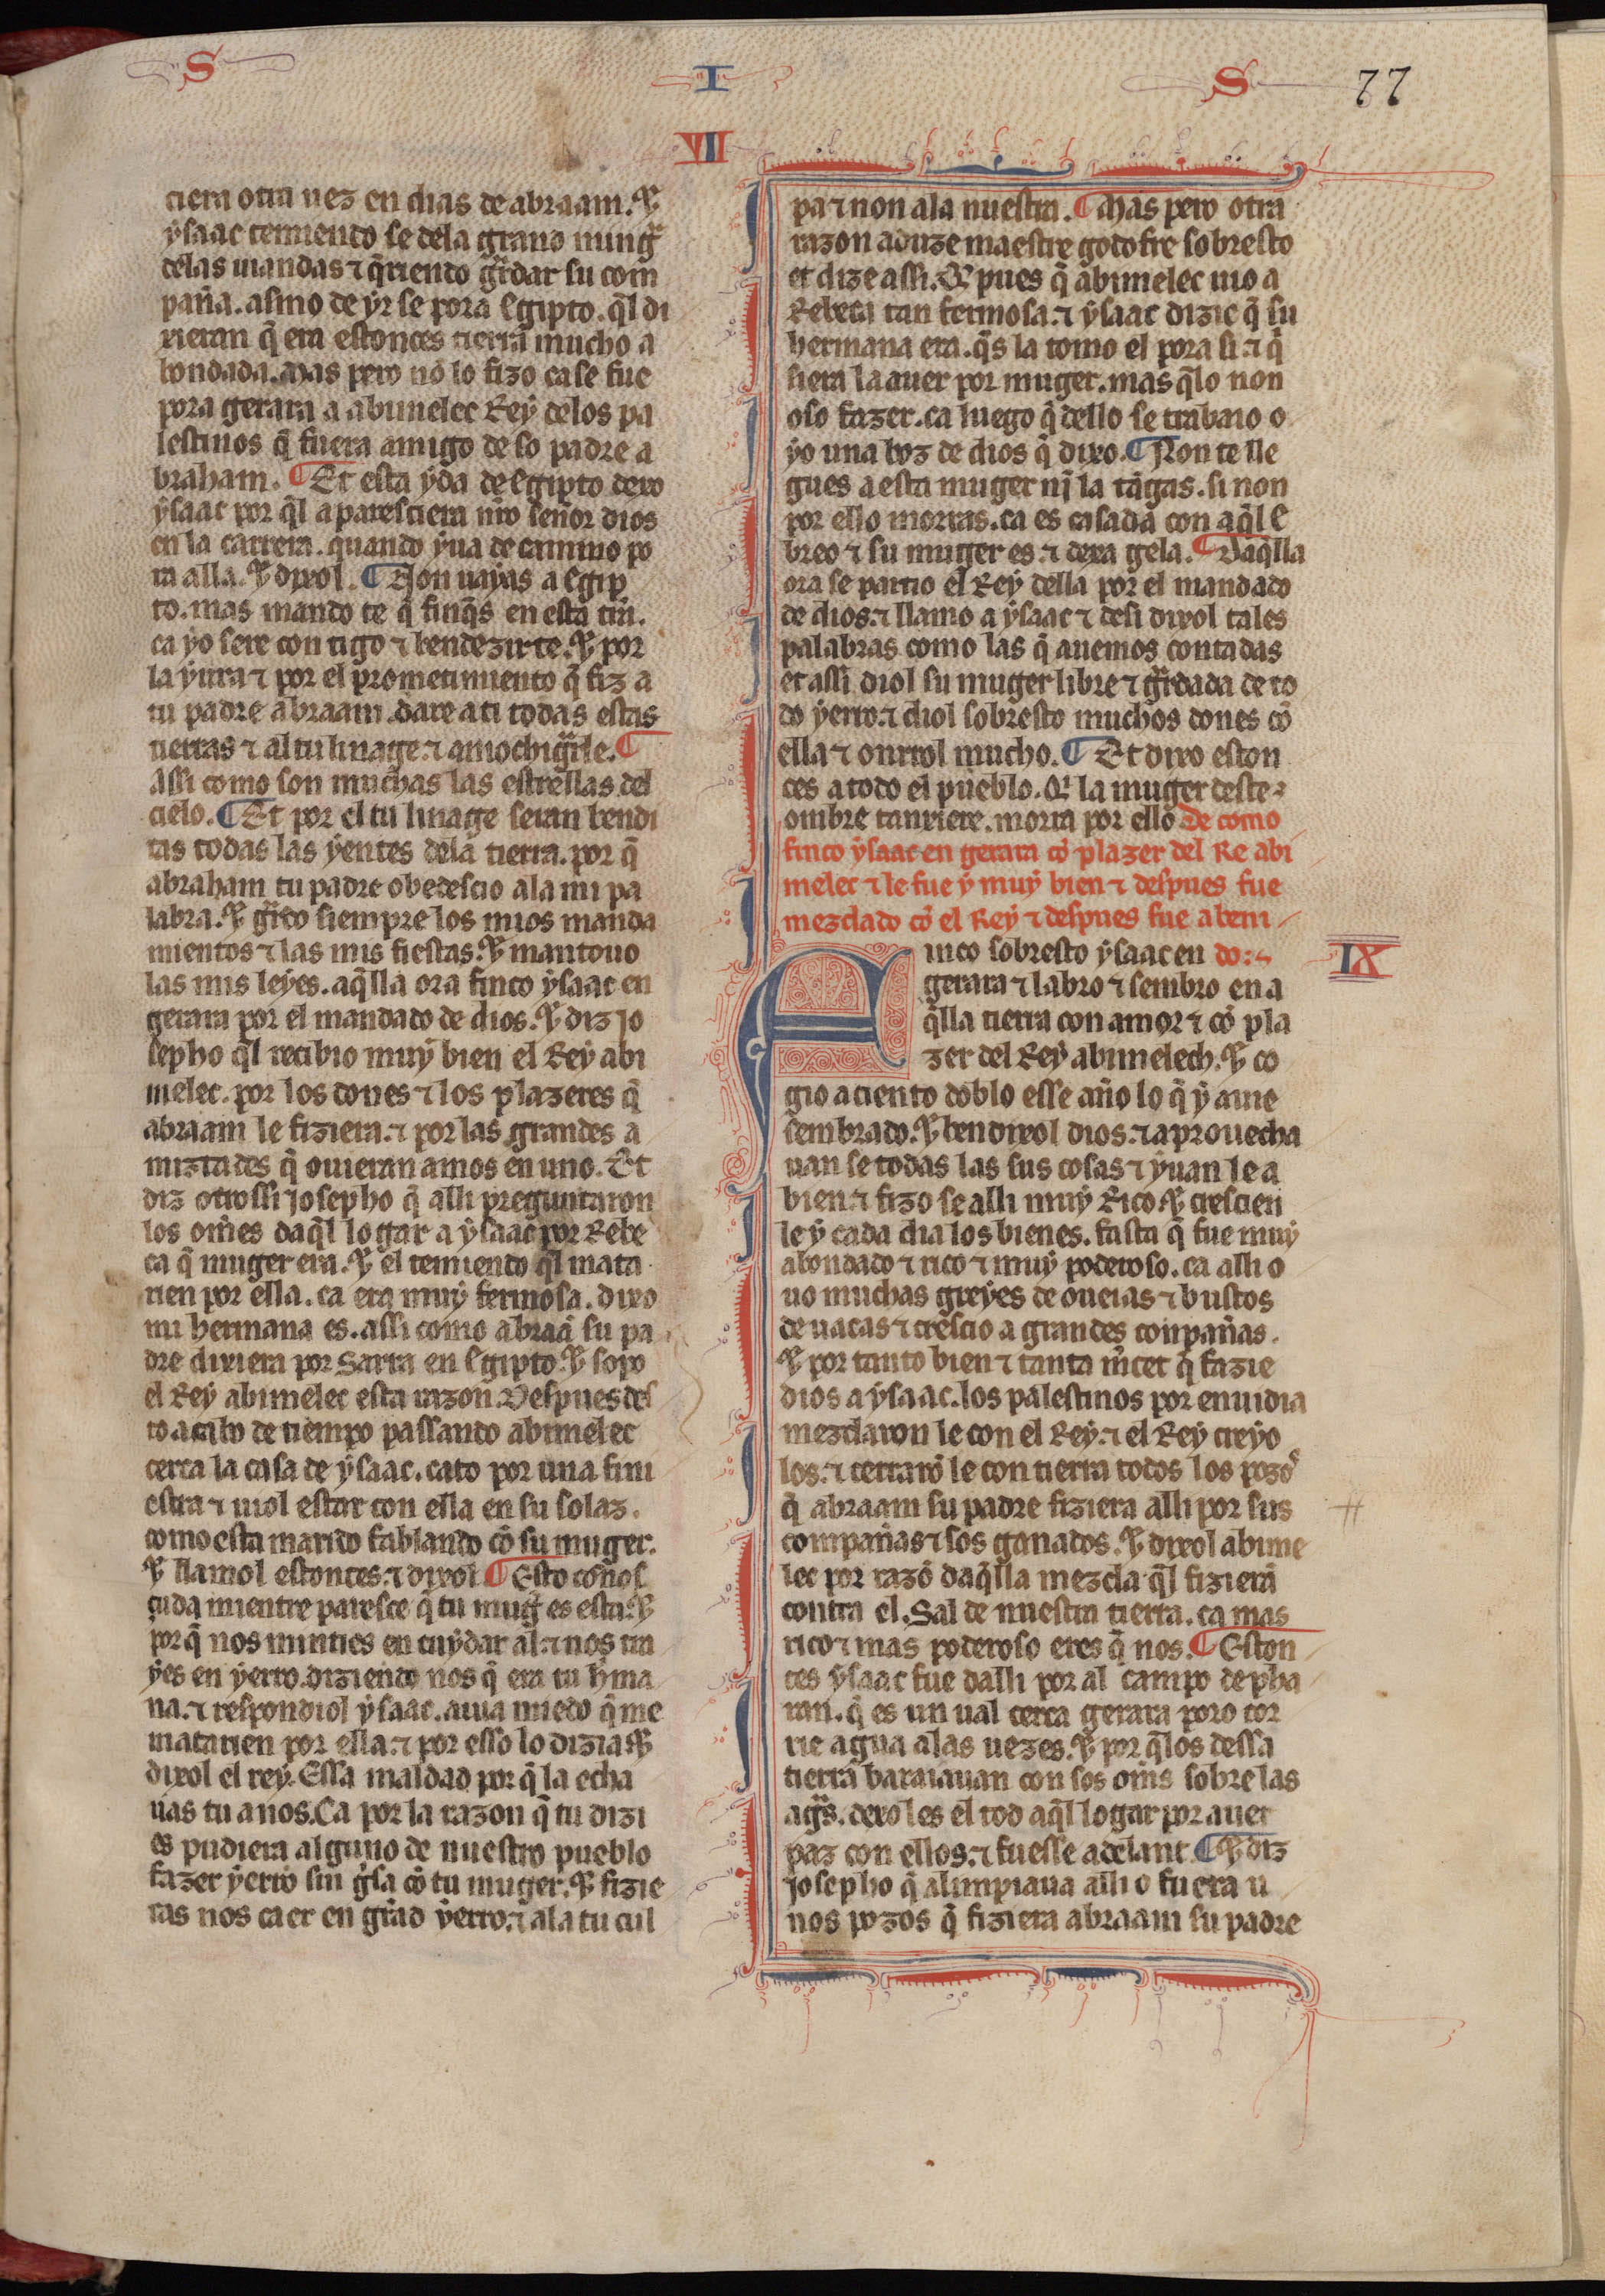 S I S 77
VII
ciera otra uez en dias de abraam. ⁊
ysaac temiendo se dela grand mungᵃ
delas uiandas ⁊ q̃riendo gᵃrdar su com
paña. asmo de yr se pora Egipto. q̃l di
xieran q̃ era estonces tierra mucho a
bondada. Mas pero nõ lo fizo ca se fue
pora gerara a abimelec Rey delos pa
lestinos q̃ fuera amigo de so padre a
braham. ¶ Et esta yda de Egipto dexo
ysaac por q̃l aparesciera nr̃o señor dios
en la carrera. quando yua de camino po
ra alla. ⁊ dixol. ¶ Non uayas a Egip
to. mas mando te q̃ finq̃s en esta tr̃ra.
ca yo sere con tigo ⁊ bendezir te. ⁊ por
la yura ⁊ por el prometimiento q̃ fiz a
tu padre abraam. dare a ti todas estas
tierras ⁊ al tu linage. ⁊ amochigᵃrle. ¶
Assi como son muchas las estrellas del
cielo. ¶ Et por el tu linage seran bendi
tas todas las yentes dela tierra. por q̃
abraham tu padre obedescio ala mi pa
labra. ⁊ gᵃrdo siempre los mios manda
mientos ⁊ las mis fiestas. ⁊ mantouo
las mis leyes. aq̃lla ora finco ysaac en
gerara por el mandado de dios. ⁊ diz jo
sepho q̃l recibio muy bien el Rey abi
melec. por los dones ⁊ los plazeres q̃
abraam le fiziera. ⁊ por las grandes a
miztades q̃ ouieran amos en uno. Et
diz otrossi josepho q̃ alli preguntaron
los om̃es daq̃l logar a ysaac por Rebe
ca q̃ muger era. ⁊ el temiendo q̃l mata
rien por ella. ca era muy fermosa. dixo
mi hermana es. assi como abraã su pa
dre dixiera por Sarra en Egipto. ⁊ sopo
el Rey abimelec esta razon. Despues des
to a cabo de tiempo passando abimelec
cerca la casa de ysaac. cato por una fini
estra ⁊ uiol estar con ella en su solaz.
como esta marido fablando cõ su muger.
⁊ llamol estonces. ⁊ dixol ¶ Esto conos
çuda mientre paresce q̃ tu mug̃ es esta. ⁊
por q̃ nos minties en cuydar al. ⁊ nos tra
yes en yerro. diziendo nos q̃ era tu h̃ma
na. ⁊ respondiol ysaac. auia miedo q̃ me
matarien por ella. ⁊ por esso lo dizia. ⁊
dixol el rey. Essa maldad por q̃ la echa
uas tu a nos. Ca por la razon q̃ tu dizi
es pudiera alguno de nuestro pueblo
fazer yerro sin g̃sa cõ tu muger. ⁊ fizie
ras nos caer en grãd yerro. ⁊ ala tu cul
pa ⁊ non ala nuestra. ¶ Mas pero otra
razon aduze maestre godofre sobresto
et dize assi. Q̃ pues q̃ abimelec uio a
Rebeca tan fermosa. ⁊ ysaac dizie q̃ su
hermana era. q̃s la tomo el pora si. ⁊ q̃
siera la auer por muger. mas q̃lo non
oso fazer. ca luego q̃ dello se trabaio o
yo una boz de dios q̃ dixo. ¶ Non te lle
gues a esta muger nj̃ la tãgas. si non
por ello morras. ca es casada con aq̃l E
breo ⁊ su muger es. ⁊ dexa gela. ¶ Daq̃lla
ora se partio el Rey della por el mandado
de dios. ⁊ llamo a ysaac ⁊ desi dixol tales
palabras como las q̃ auemos contadas
et assi diol su muger libre ⁊ gᵃrdada de to
do yerro. ⁊ diol sobresto muchos dones cõ
ella ⁊ onrrol mucho. ¶ Et dixo eston
ces a todo el pueblo. Q̃ la muger deste
ombre tanxiere. morra por ello De como
finco ysaac en gerara cõ plazer del Re abi
melec ⁊ le fue y muy bien ⁊ despues fue
mezclado cõ el Rey ⁊ despues fue abeni
Finco sobresto ysaac en do:~
IX
gerara ⁊ labro ⁊ sembro en a
q̃lla tierra con amor ⁊ cõ pla
zer del Rey abimelech. ⁊ co
gio a ciento doblo esse año lo q̃ y auie
sembrado. ⁊ bendixol dios. ⁊ aprouecha
uan se todas las sus cosas ⁊ yuan le a
bien. ⁊ fizo se alli muy Rico. ⁊ crescien
le y cada dia los bienes. fasta q̃ fue muy
abondado ⁊ rico ⁊ muy poderoso. ca alli o
uo muchas greyes de oueias ⁊ bustos
de uacas ⁊ crescio a grandes conpañas.
⁊ por tanto bien ⁊ tanta m̃cet q̃ fazie
dios a ysaac. los palestinos por enuidia
mezclaron le con el Rey. ⁊ el Rey creyo
los. ⁊ cerrarõ le con tierra todos los pozos
q̃ abraam su padre fiziera alli por sus
compañas ⁊ sos ganados. ⁊ dixol abime
lec por razõ daq̃lla mezcla q̃l fizierã
contra el. Sal de nuestra tierra. ca mas
rico ⁊ mas poderoso eres q̃ nos. ¶ Eston
ces ysaac fue dalli por al campo de pha
ran. q̃ es un ual cerca gerara poro cor
rie agua alas uezes. ⁊ por q̃los dessa
tierra baraiauan con sos om̃s sobre las
agᵃs. dexo les el tod aq̃l logar por auer
paz con ellos. ⁊ fuesse adelant. ¶ ⁊ diz
josepho q̃ alimpiaua alli o fuera u
nos pozos q̃ fiziera abraam su padre